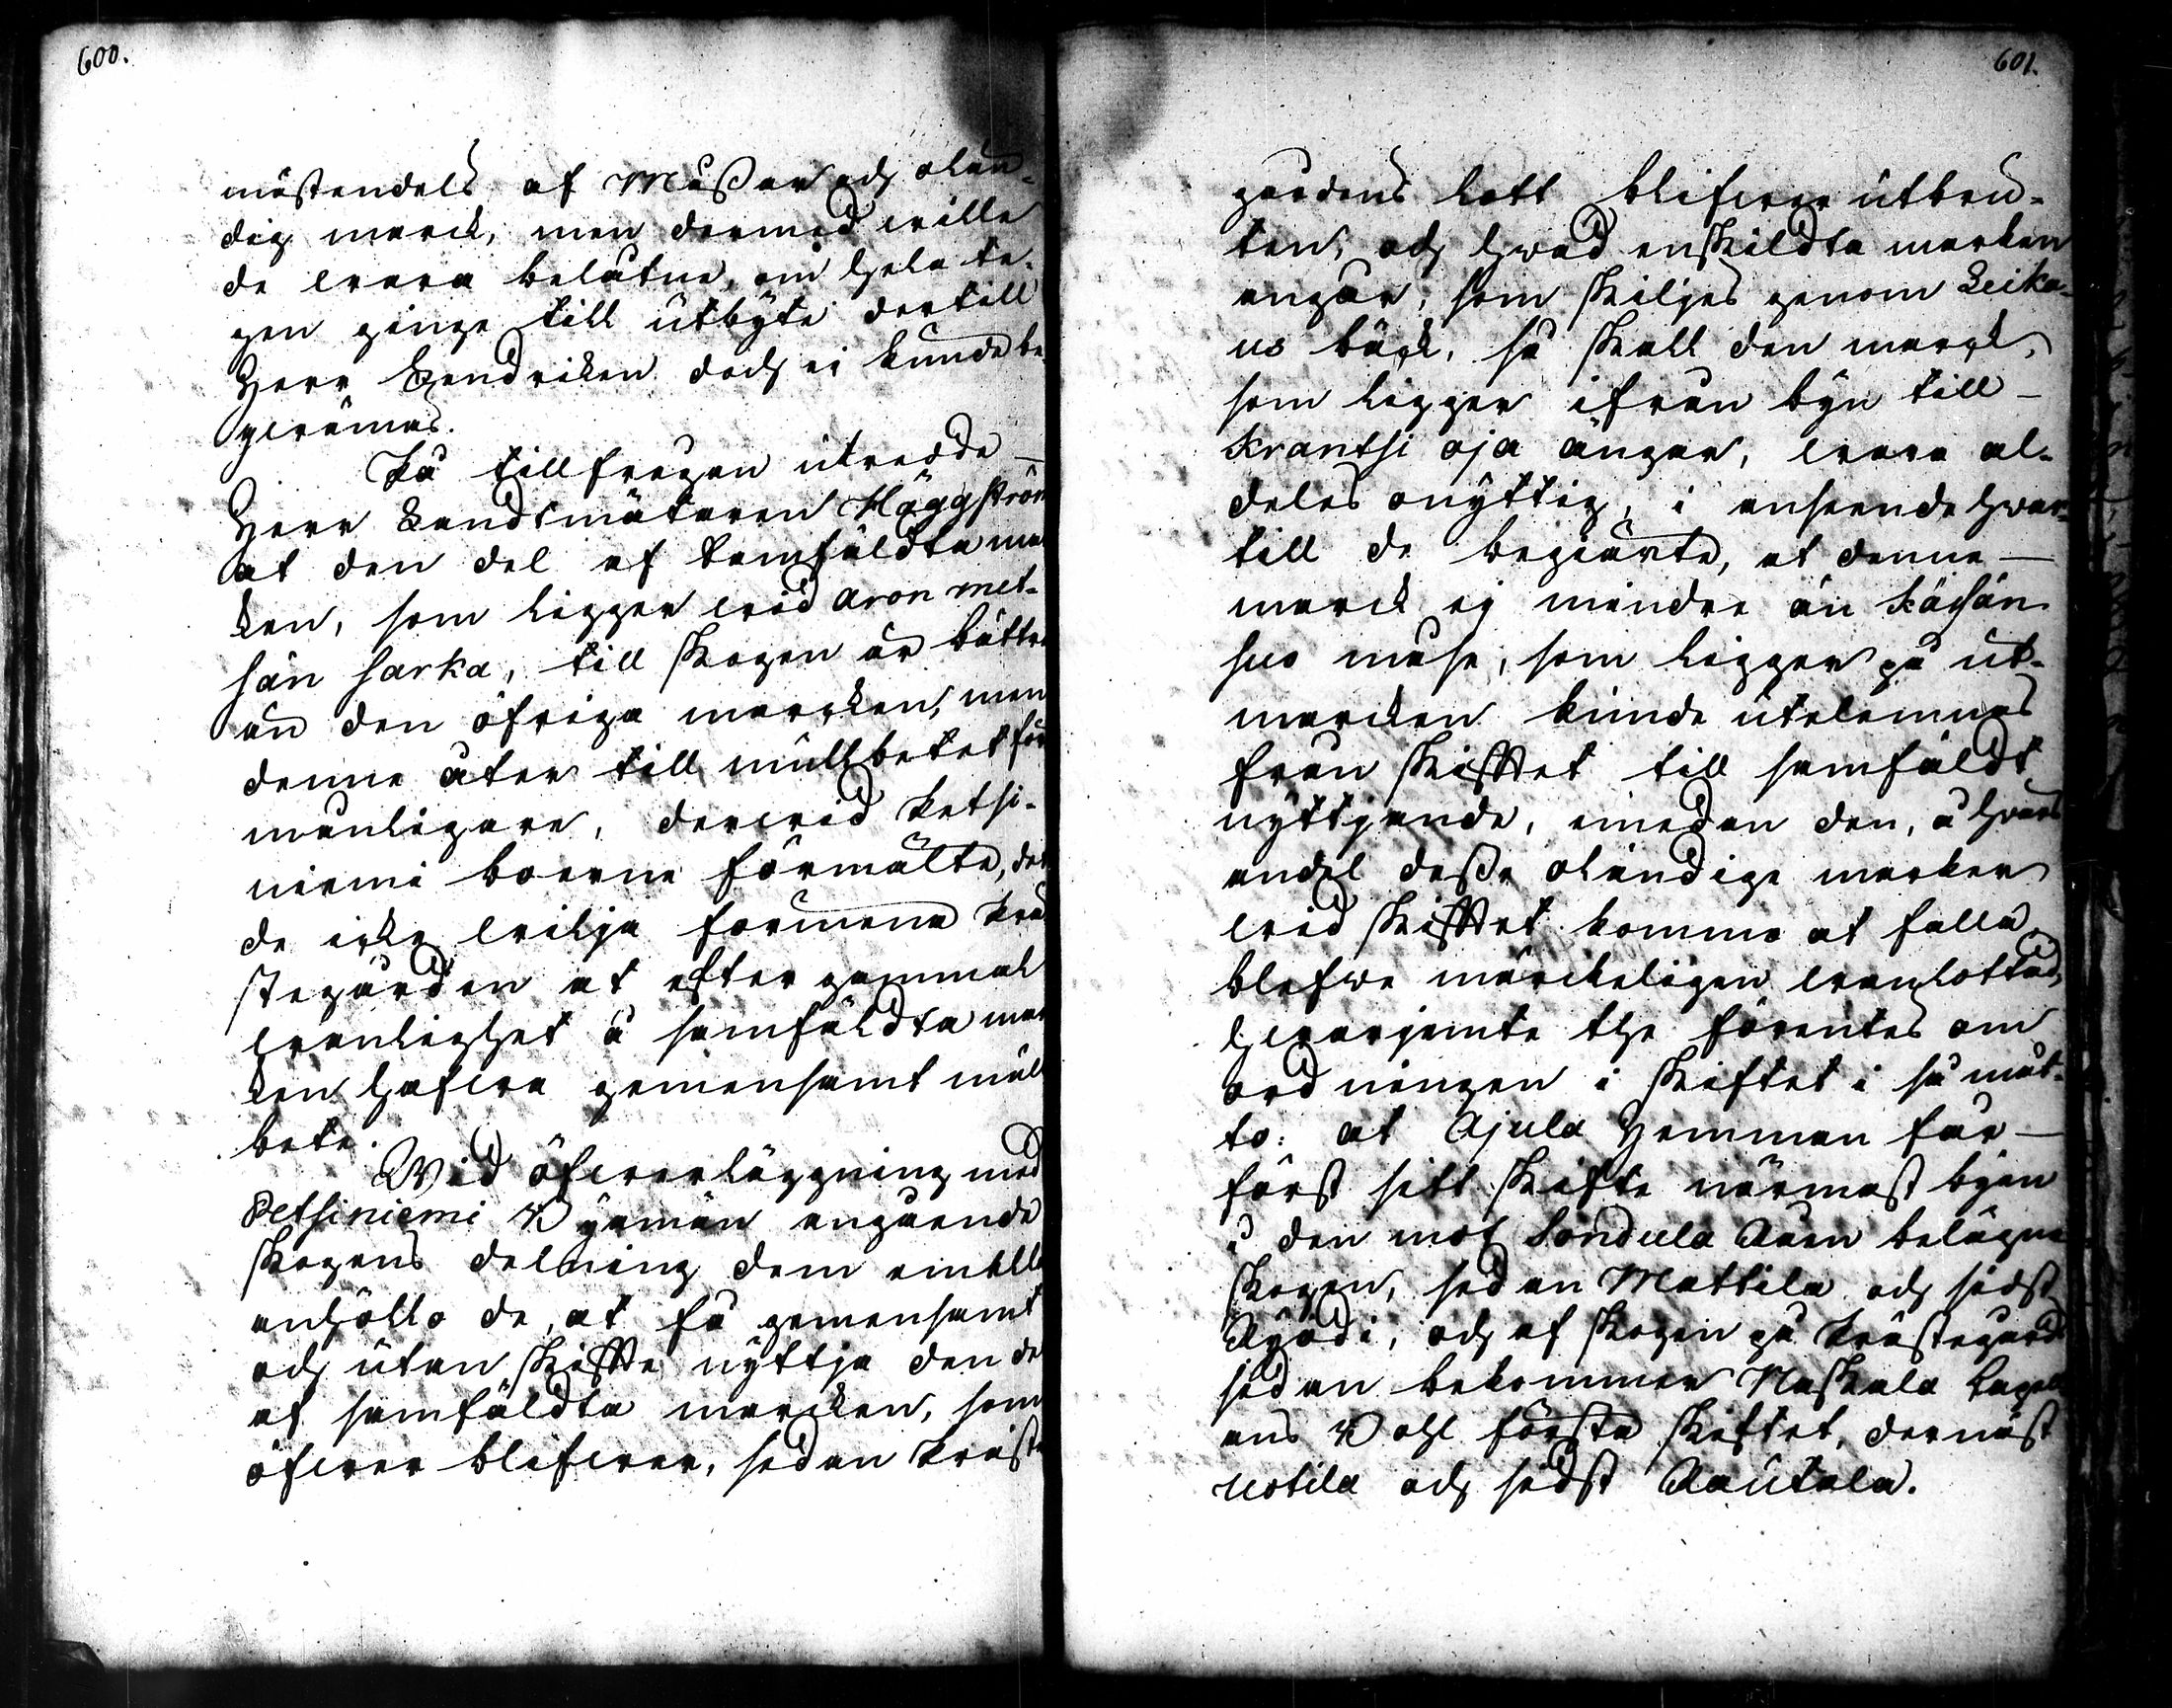 600.
mästendels af Måssar och olän-
dig marck, men dermed wille
de wara belåtne, om hela te-
gen ginge till utbyte dertill
Herr Hendricken doch ei kunde be-
qwämas.
På tillfrågan utredde
Herr Landtmätaren Häggström
at den del af samfäldta mar
ken, som ligger wid Aron met-
sän sarka, till skogen är bättre
än den öfriga marcken, men
denne åter till mullbetet för
månligare, derwid Petsi-
niemi boerne förmälte, det
de icke wilja förmena Prä
stegården at efter gammal
wanlighet å samfäldta mar
ken hafwa gemensamt mull
bete.
Wid öfwerläggning med
Petsiniemi Byamän angående
skogens delning dem emellan
anhöllo de, at få gemensamt
och utan skifte nyttja den del
af samfäldta marcken, som
öfwer blifwer, sedan Präste
601.
gårdens lott blifwer utbru-
ten, och hwad enskildta marken
angår, som skiljes genom Leika-
us bäck, så skall den marck,
som ligger ifrån byn till
Krantsi oja ängar, wara al-
deles onyttig, i anseende hwar-
till de begiärte, at denne
marck ej mindre än Käysän
suo måse, som ligger på ut-
marcken kunde utelemnas
från skiftet till samfäldt
nyttjande, emedan den, å hwars
andel desse oländige marker
wid skiftet komme at falla,
blefwe märckeligen wanlottad,
hwarjemte the förentes om
ordningen i skiftet i så måt-
to: at Ajula Hemman får
först sitt skifte närmast byen
i den mot Sondula Åuen belägne
skogen, sedan Mattila och sidst
Äyödi, och af skogen på Prästegårds
sidan bekommer Naskala Capell
ans Bohl första skiftet, dernäst
Uotila och sidst Aautala.